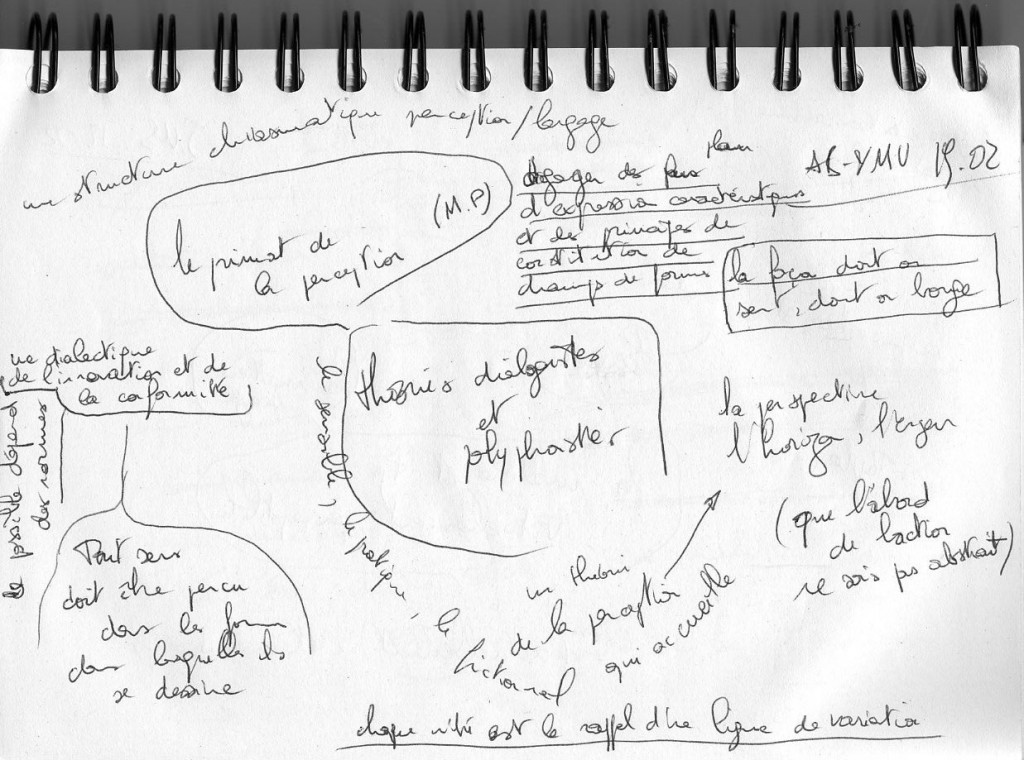 une structure chiasmatique perception/langage
plan
AB-YMV 19.02
dégager des
d'expression caractéristiques
et des principes de
constitution de
champs de formes
(M.P)
le primat de
la perception
la façon dont on
sent, dont on bouge
une dialectique
de l'innovation et de
la conformité
le possible dépend
des normes
théories dialogistes
et
polyphonistes
la perspective
l'horizon, l'
(que l'abord
de l'action
ne sois pas abstrait)
Tout sens
doit être perçu
dans les formes
dans lesquelles ils
se dessine
le sensible, le pratique, le
fictionnel
un théorie
de la perception
qui accueille
chaque unité est le rappel d'une ligne de variation